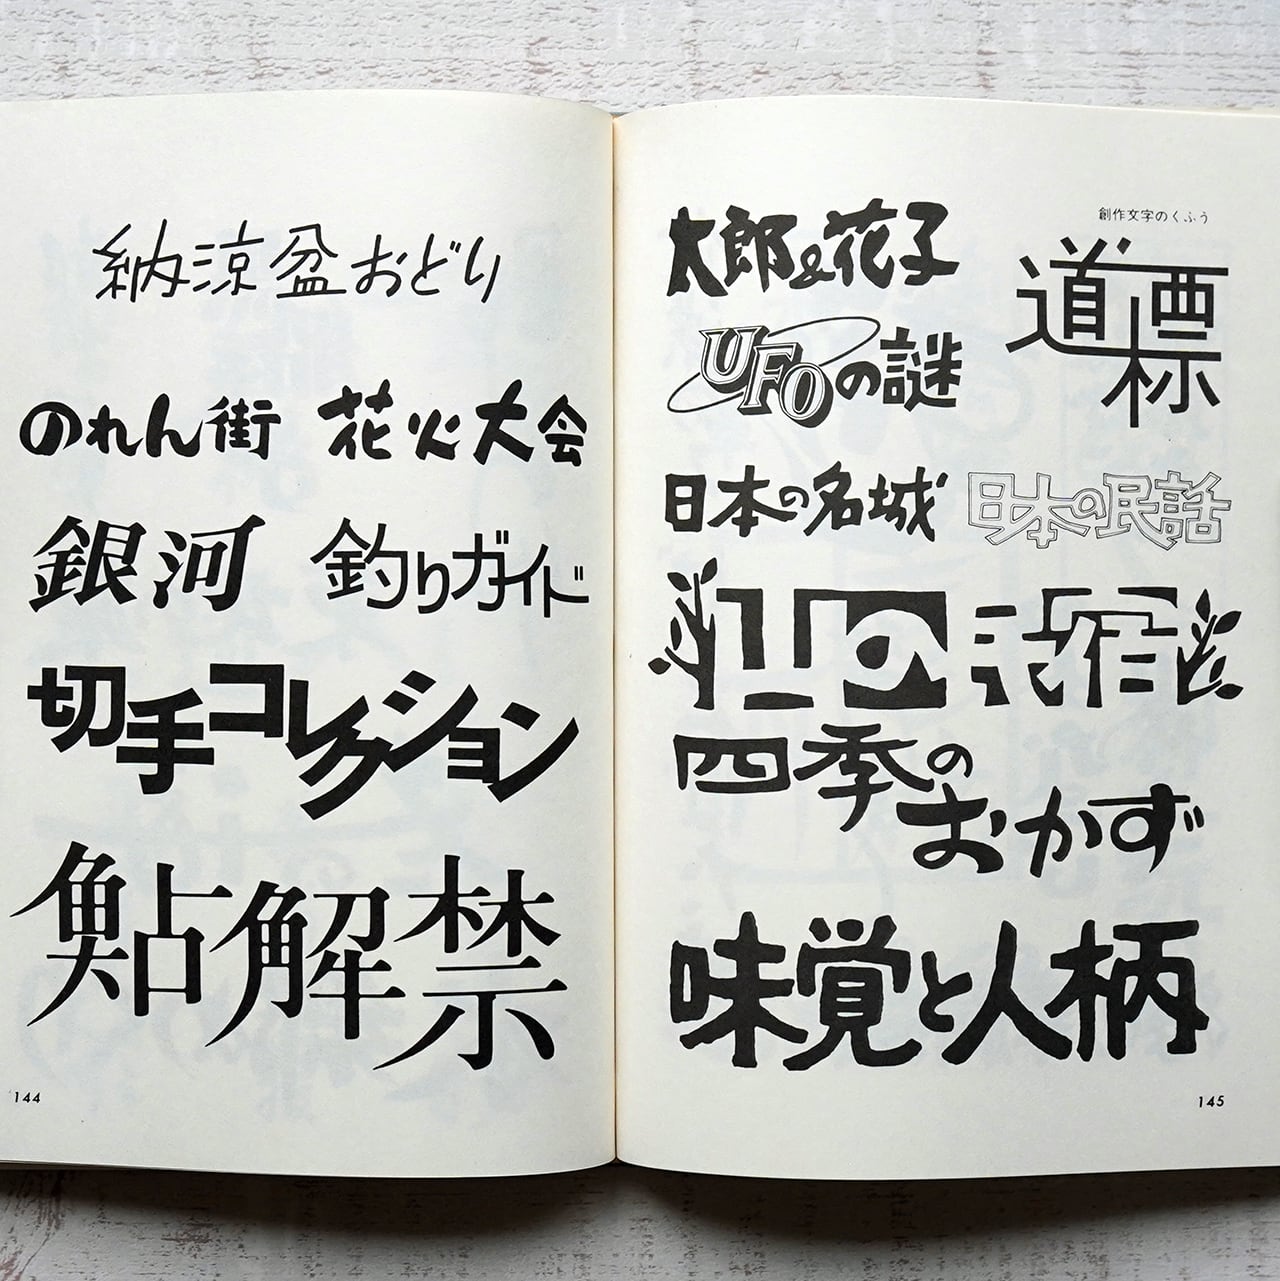 納涼盆おどり
のれん街
花火大会
銀河
釣りガイド
切手コレクション
鮎解禁
144
創作文字のくふう
太郎&花子
道標
UFOの謎
日本の名城
日本の民話
山の
四季の
おかず
味覚と人柄
145